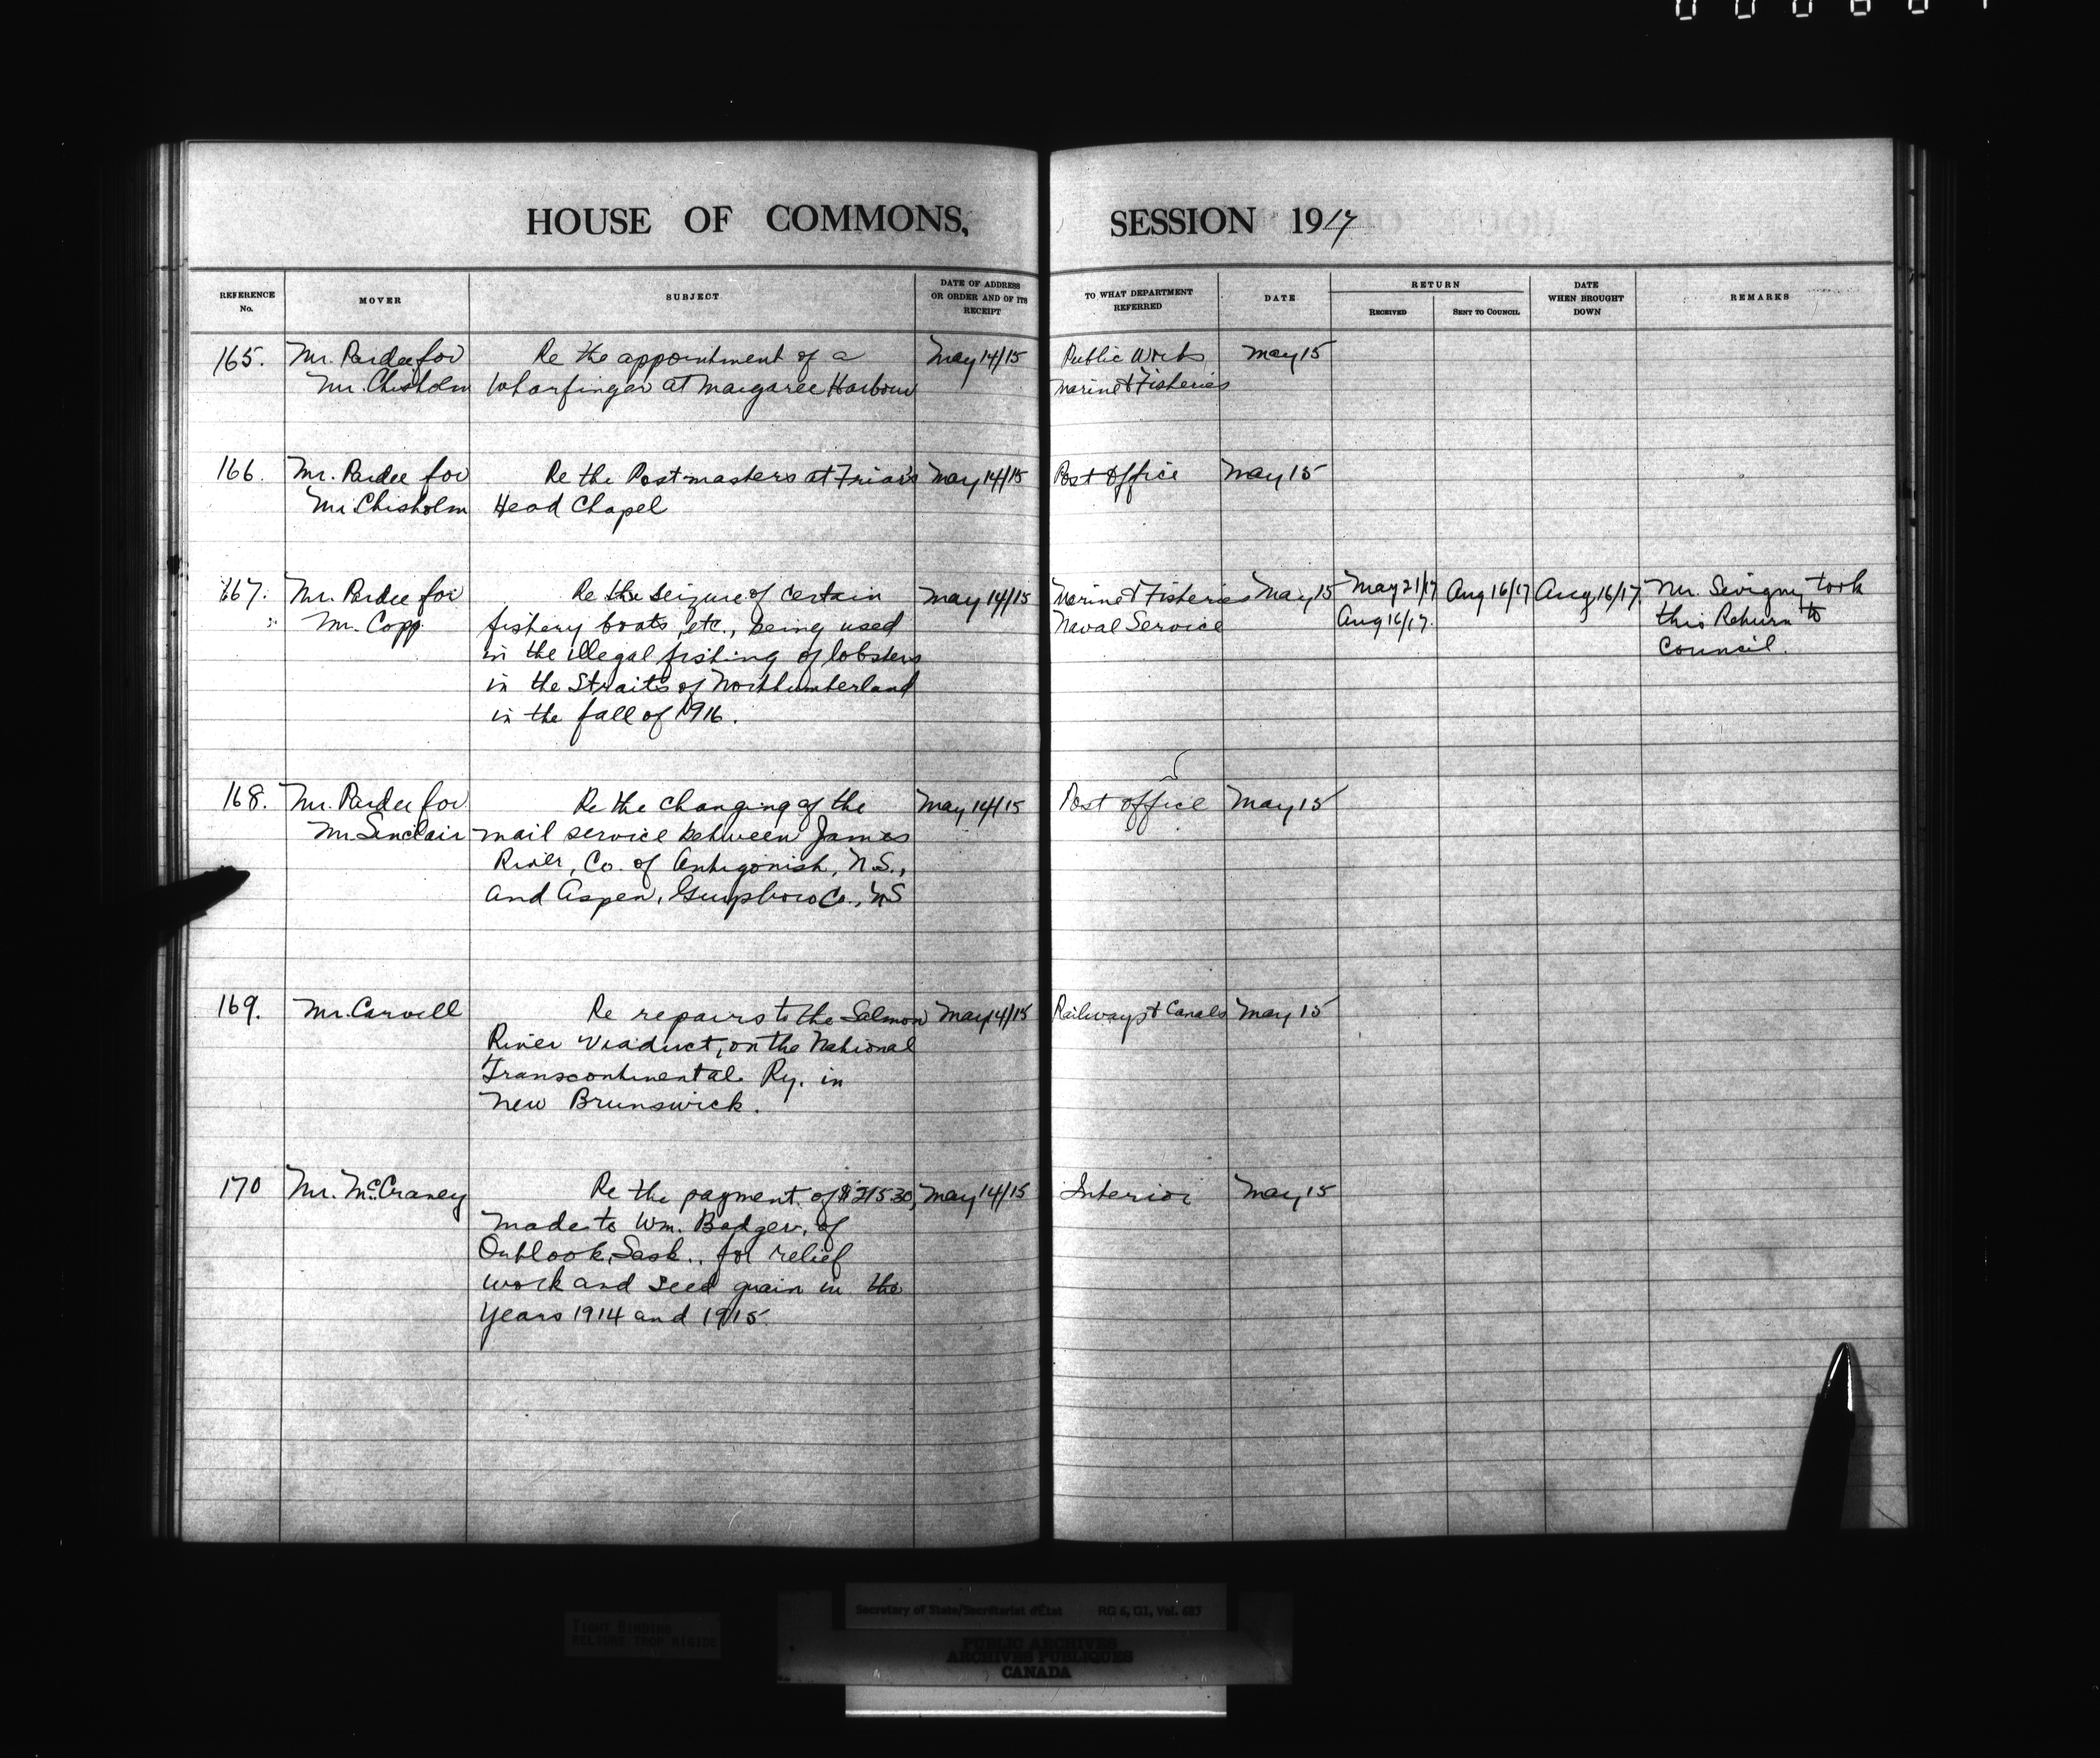 HOUSE OF COMMONS, SESSION 1917
REFERENCE No.
MOVER
SUBJECT
DATE OF ADDRESS OR ORDER AND OF ITS RECEIPT
TO WHAT DEPARTMENT REFERRED
DATE
RETURN
RECEIVED
SENT TO COUNCIL
DATE WHEN BROUGHT DOWN
REMARKS
165. Mr. Pardee for Re the appointment of a May 14/15 Public Works May 15
Mr. Chisholm Wharfinger at Margaree Harbour Marine & Fisheries
166. Mr. Pardee for Re the Postmasters at Friar's May 14/15 Post Office May 15
Mr Chisholm Head Chapel
167. Mr. Pardee for Re the seizure of certain May 14/15 Marine & Fisheries May 15 May 21/17 Aug 16/17 Aug 16/17. Mr. Sevigny took
Mr. Copp. fishery boats, etc., being used Naval Service Aug 16/17. this Return to
in the illegal fishing of lobsters Council.
in the Straits of Northumberland
in the fall of 1916.
168. Mr. Pardee for Re the changing of the May 14/15 Post office May 15
Mr Sinclair mail service between James
River, Co. of Antigonish, N.S.,
and Aspen, Guysboro Co., NS
169. Mr. Carvell Re repairs to the Salmon May 14/15 Railways & Canals May 15
River Viaduct, on the National
Transcontinental Ry. in
New Brunswick.
170 Mr. McCraney Re the payment of $215.30, May 14/15 Interior May 15
made to Wm. Badger, of
Outlook, Sask., for relief
work and seed grain in the
years 1914 and 1915.
TIGHT BINDING
RELIURE TROP RIGIDE
Secretary of State/Secrétariat d'État RG 6, G1, Vol. 683
PUBLIC ARCHIVES
ARCHIVES PUBLIQUES
CANADA